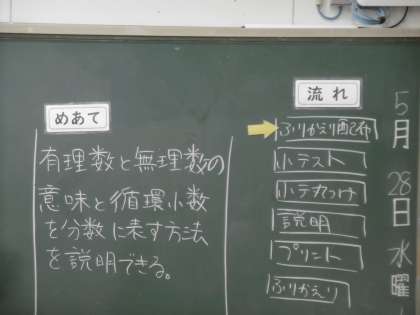 めあて
有理数と無理数の
意味と循環小数
を分数に表す方法
を説明できる。
流れ
ふりかえり配布
小テスト
小テ丸つけ
説明
プリント
ふりかえり
5月28日水曜